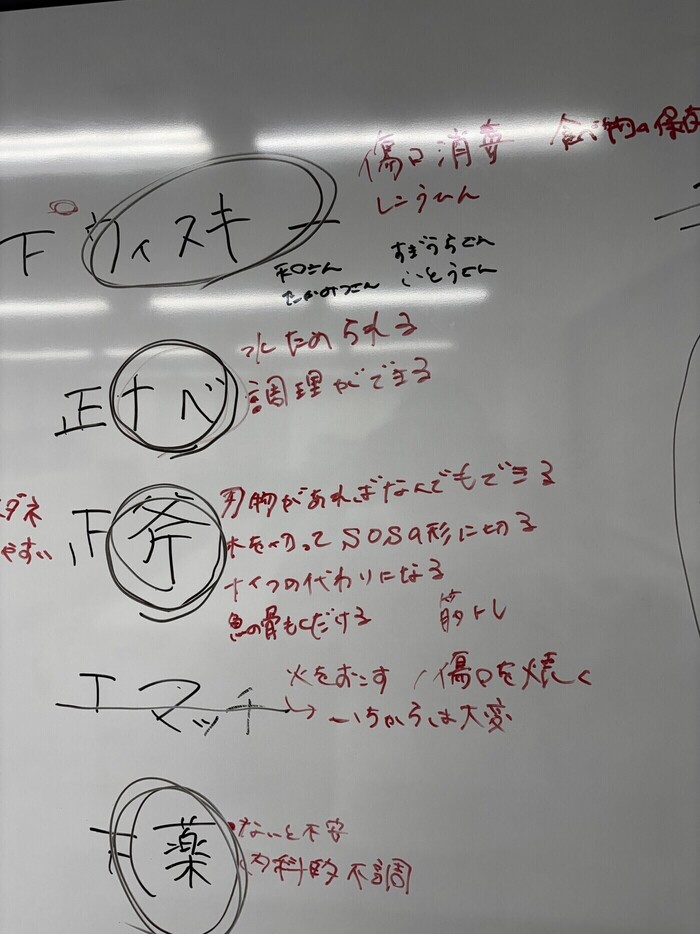 傷口消毒 食べ物の保存
しこうひん
ウィスキー
すぎうらさん
さいとうさん
水ためられる
正 ナベ 調理ができる
刃物があればなんでもできる
正 斧 木を切ってSOSの形に切る
ナイフの代わりになる
魚の骨もくだける 筋トレ
マッチ 火をおこす / 傷口を焼く
→ いちからは大変
薬 ・ないと不安
内科的不調
ダネ
やすい